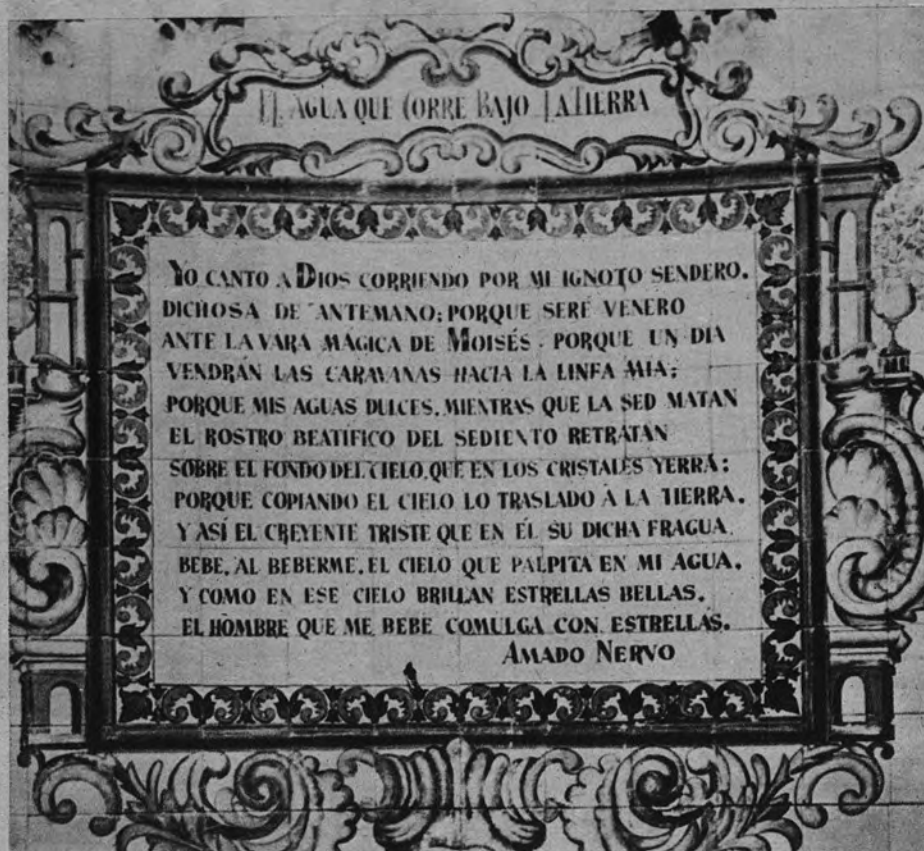 EL AGUA QUE CORRE BAJO LA TIERRA
YO CANTO A DIOS CORRIENDO POR MI IGNOTO SENDERO.
DICHOSA DE ANTEMANO; PORQUE SERÉ VENERO
ANTE LA VARA MÁGICA DE MOISÉS. PORQUE UN DIA
VENDRÁN LAS CARAVANAS HACIA LA LINFA MIA;
PORQUE MIS AGUAS DULCES, MIENTRAS QUE LA SED MATAN
EL ROSTRO BEATIFICO DEL SEDIENTO RETRATAN
SOBRE EL FONDO DEL CIELO, QUE EN LOS CRISTALES YERRA;
PORQUE COPIANDO EL CIELO LO TRASLADO Á LA TIERRA.
Y ASÍ EL CREYENTE TRISTE QUE EN ÉL SU DICHA FRAGUA.
BEBE, AL BEBERME, EL CIELO QUE PALPITA EN MI AGUA.
Y COMO EN ESE CIELO BRILLAN ESTRELLAS BELLAS.
EL HOMBRE QUE ME BEBE COMULGA CON ESTRELLAS.
AMADO NERVO